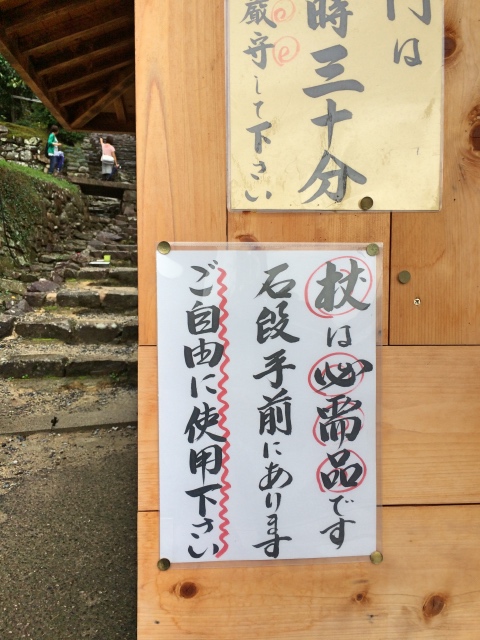 門は
時三十分
厳守して下さい
杖は必需品です
石段手前にあります
ご自由に使用下さい